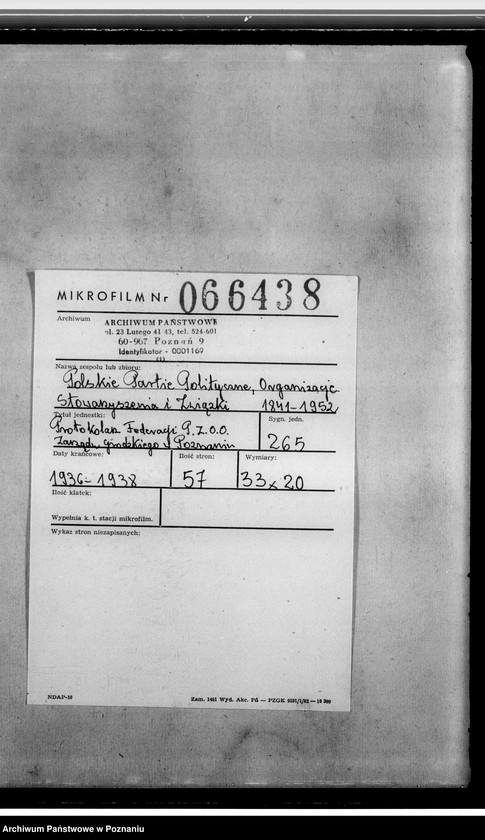 MIKROFILM Nr 066438
Archiwum
ARCHIWUM PAŃSTWOWE
ul. 23 Lutego 41 43, tel. 524-601
60-967 Poznań 9
Identyfikator - 0001169
Nazwa zespołu lub zbioru:
Polskie Partie Polityczne, Organizacje
Stowarzyszenia i Związki 1841-1952
Tytuł jednostki:
Sygn. jedn.
Federacji P.Z.O.O.
Zarządu grodzkiego Poznaniu
265
Daty krańcowe:
Ilość stron:
Wymiary:
1936-1938
57
33x20
Ilość klatek:
Wypełnia k. t. stacji mikrofilm.
Wykaz stron niezapisanych:
NDAP-10
Zam. 1461 Wyd. Akc. Pń — PZGK
Archiwum Państwowe w Poznaniu